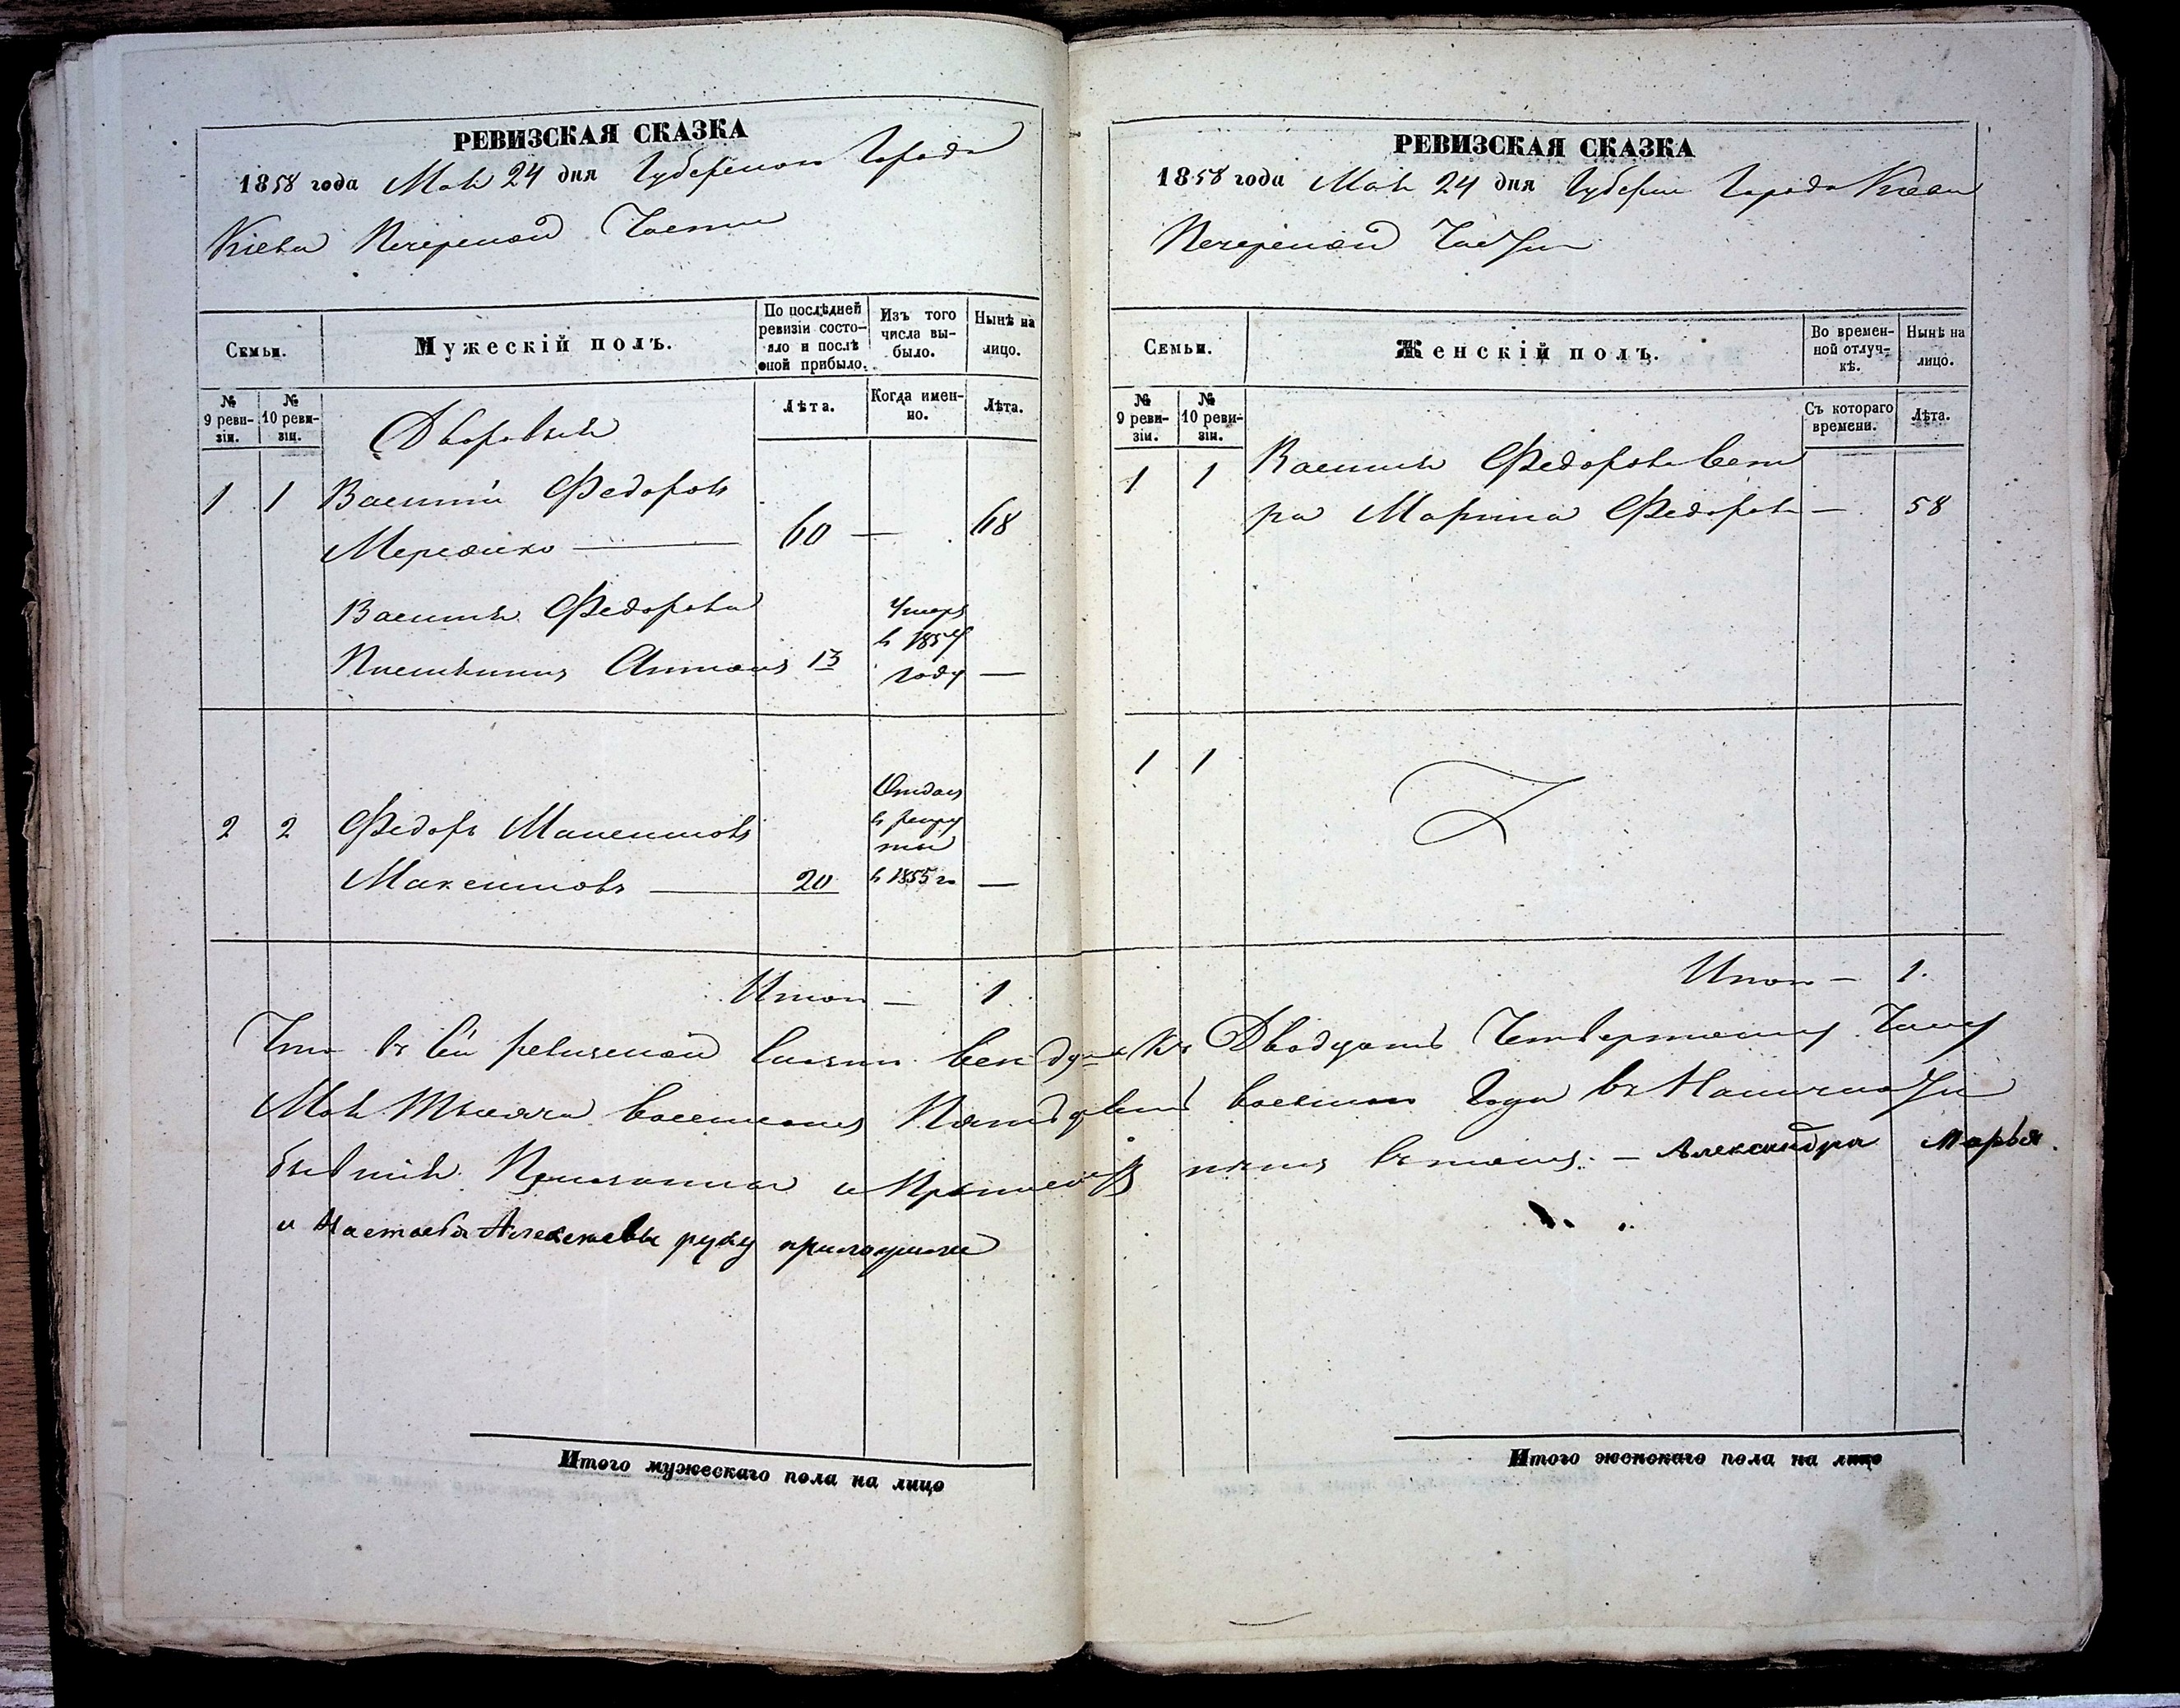 РЕВИЗСКАЯ СКАЗКА
1858 года Мая 24 дня Губернскаго Города
Кіева Печерской Части
Семьи.
Мужескій полъ.
По послѣдней ревизіи состояло и послѣ оной прибыло.
Изъ того числа выбыло.
Нынѣ на лицо.
№ 9 ревизіи.
№ 10 ревизіи.
Лѣта.
Когда именно.
Лѣта.
Дворовыя
1 1 Василій Федоровъ
60 — 68
Василія Федорова
Племянникъ Антонъ 13
Умеръ
в 1854
году —
2 2 Федоръ Максимовъ
Максимовъ — 20
Отданъ
в рекру
ты
в 1855 го —
Итого — 1
РЕВИЗСКАЯ СКАЗКА
1858 года Мая 24 дня Губерн Города Кіева
Печерской Части
Семьи.
Женскій полъ.
Во временной отлучкѣ.
Нынѣ на лицо.
№ 9 ревизіи.
№ 10 ревизіи.
Съ котораго времени.
Лѣта.
1 1 Василія Федорова сест
ра Марина Федорова — 58
1 1
Итого — 1.
Что въ сей ревизской сказки всѣ души къ Двадцать Четвертому Числу
Мая Тысяча восемьсотъ Пятьдесятъ восьмаго Года въ Наличности
бывшія показаны и прописныхъ нѣтъ въ томъ: — Александра Марья
и Настасья Алексеевы руку приложили
Итого мужескаго пола на лицо
Итого женскаго пола на лицо